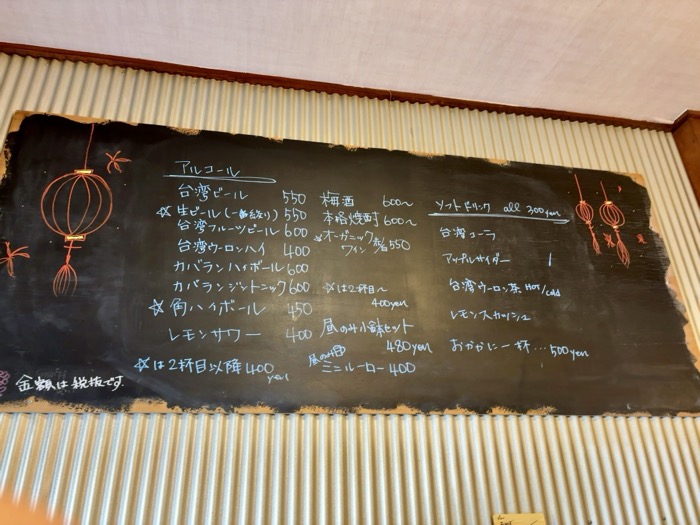 アルコール
台湾ビール 550
☆生ビール(一番絞り) 550
台湾フルーツビール 600
台湾ウーロンハイ 400
カバランハイボール 600
カバランジントニック 600
☆角ハイボール 450
レモンサワー 400
☆は2杯目以降400yen
金額は税抜です
梅酒 600〜
本格焼酎 600〜
☆オーガニック
ワイン 550
☆は2杯目〜
400yen
昼のみ小鉢セット
480yen
昼のみ
ミニルーロー 400
ソフトドリンク all 300yen
台湾コーラ
アップルサイダー
台湾ウーロン茶 Hot/cold
レモンスカッシュ
おかかに一杯…500yen